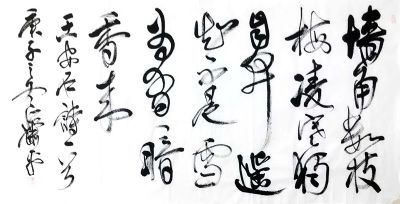 墙角数枝
梅凌寒獨
自开遥
知不是雪
为有暗
香来
王安石詩一首
庚子之冬